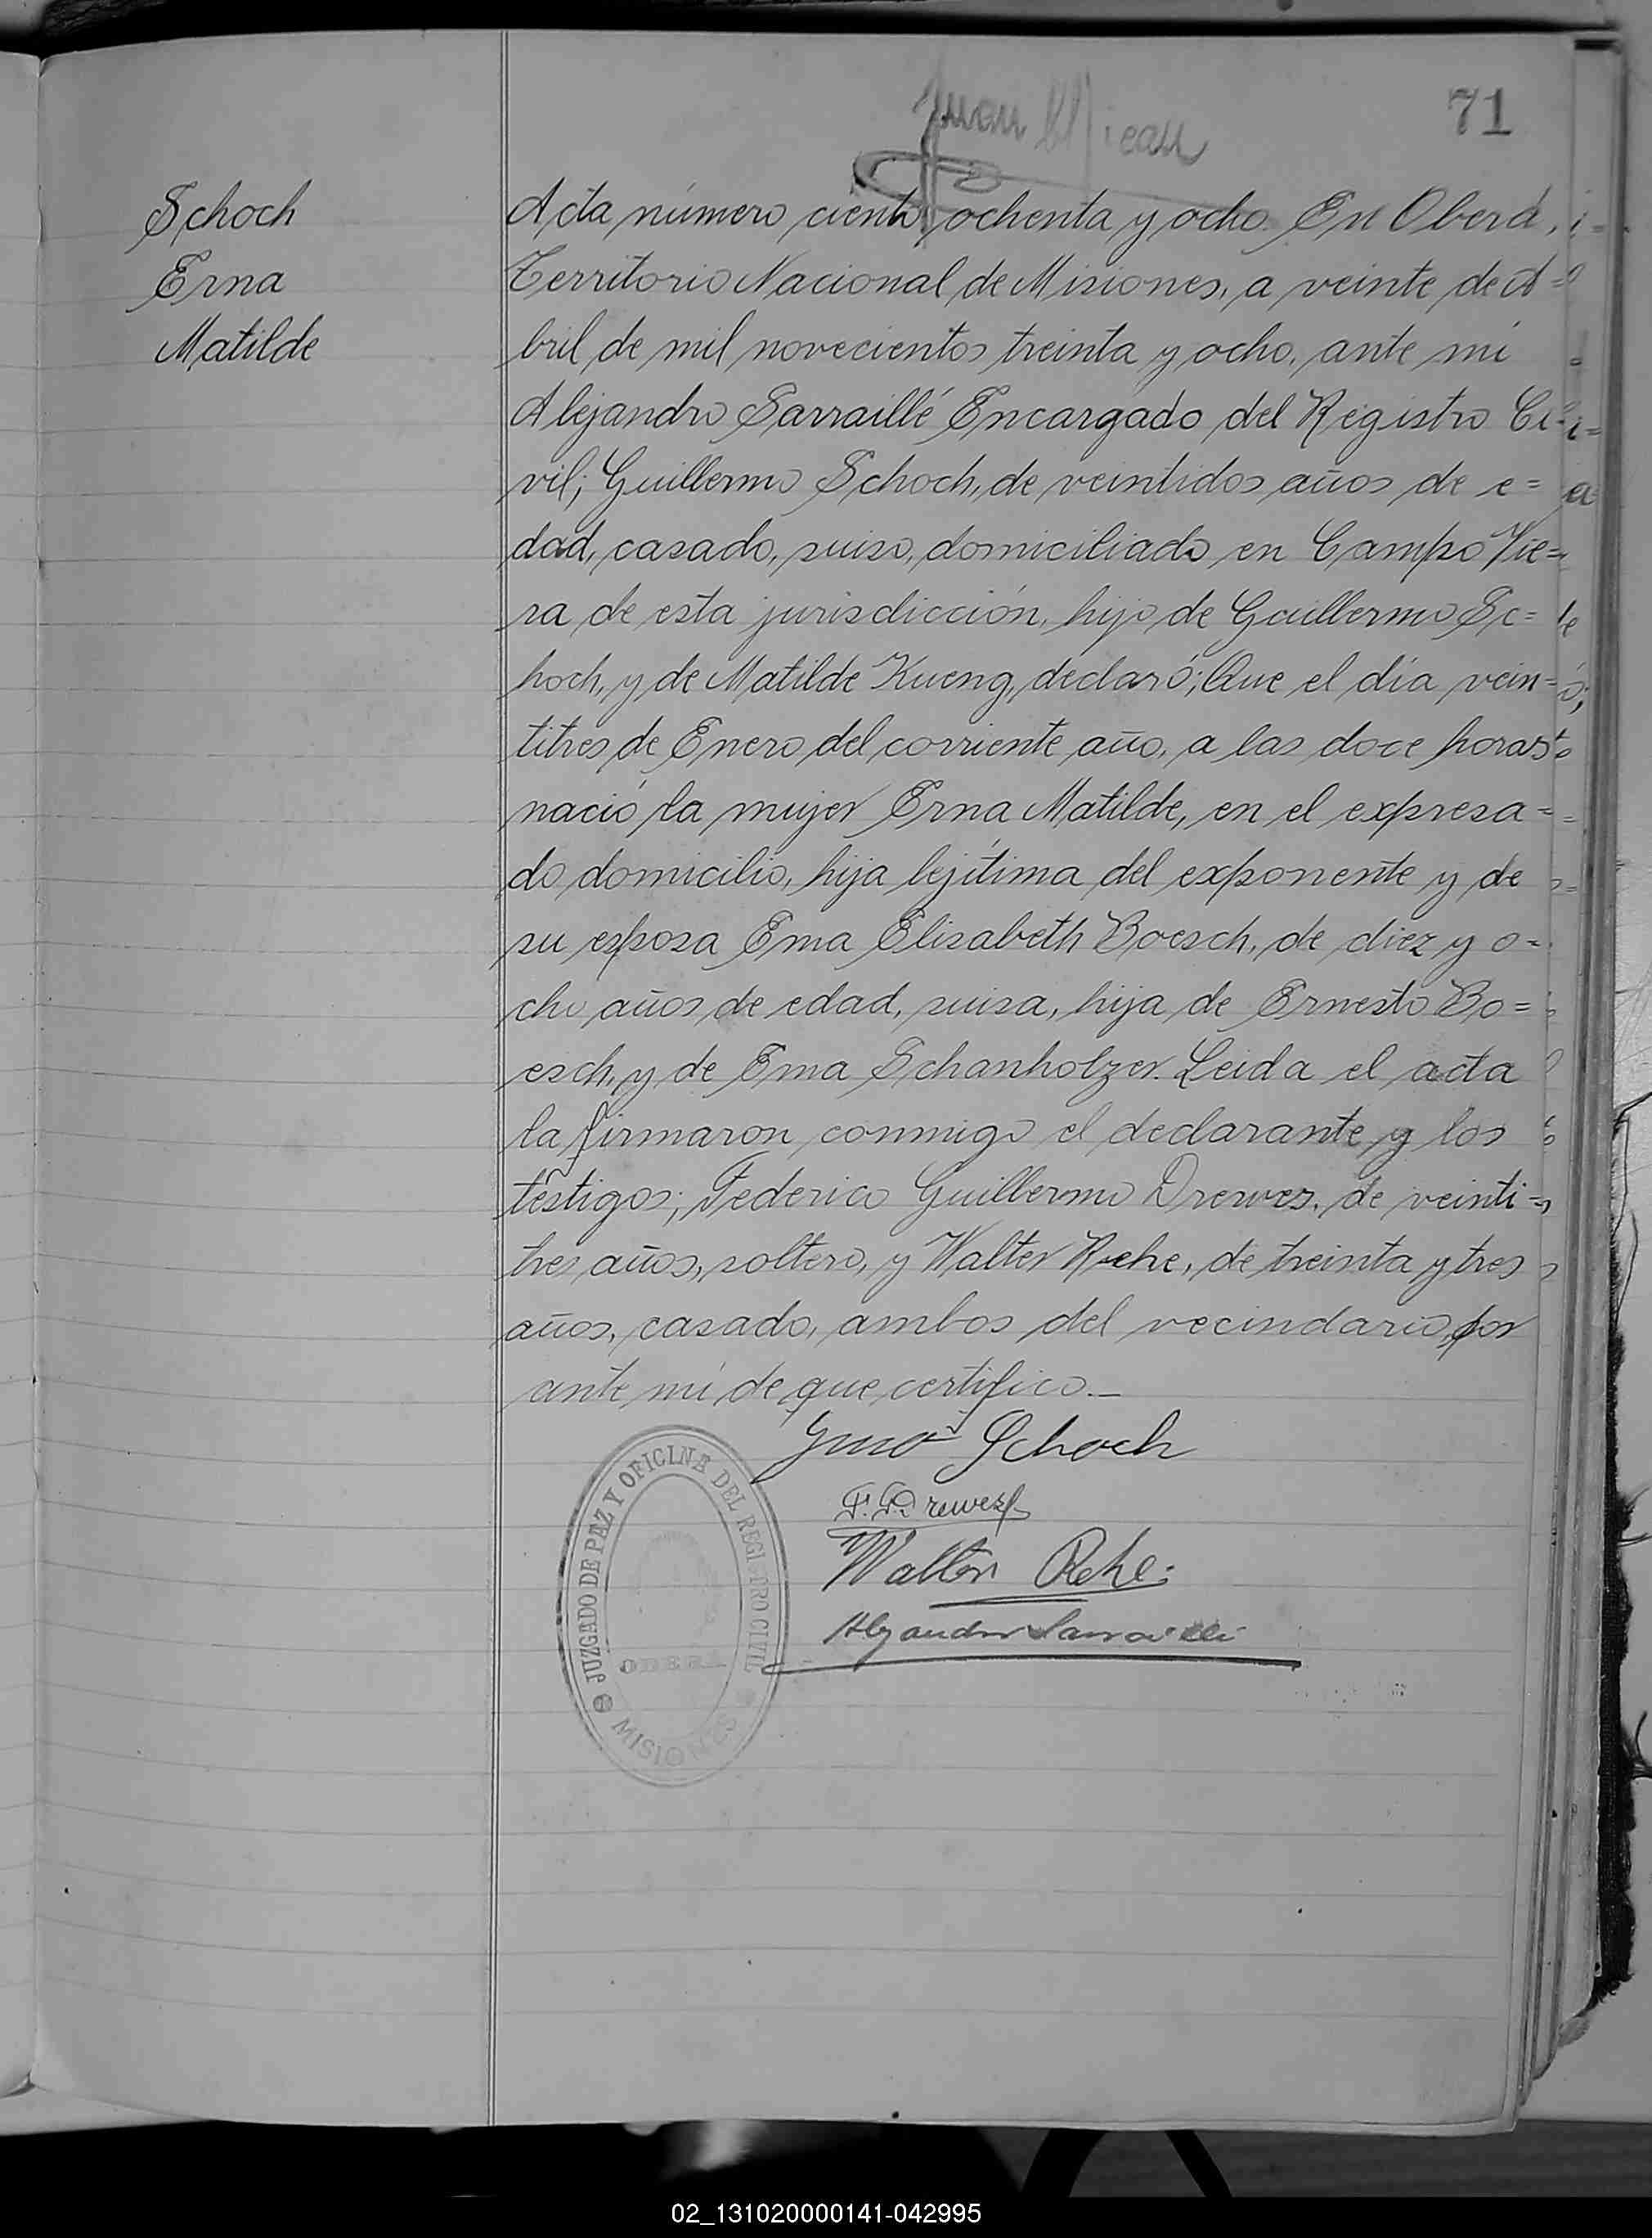 71
Juan
Schoch
Erna
Matilde
Acta número ciento ochenta y ocho. En Oberá,
Territorio Nacional de Misiones, a veinte de A=
bril de mil novecientos treinta y ocho, ante mi
Alejandro Sarraillé Encargado del Registro Ci-
vil; Guillermo Schoch, de veintidos años de e=
dad, casado, suiso, domiciliado en Campo Vie=
ra de esta jurisdicción, hijo de Guillermo Sc=
hoch, y de Matilde Kueng, declaró; Que el día vein=
titres de Enero del corriente año, a las doce horas
nació la mujer Erna Matilde, en el expresa=
do domicilio, hija lejítima del exponente y de
su esposa Ema Elisabeth Boesch, de diez y o=
cho años de edad, suisa, hija de Ernesto Bo=
esch, y de Ema Schanholzer. Leida el acta
la firmaron conmigo el declarante y los
testigos; Federico Guillermo Drewes, de veinti=
tres años, soltero, y Walter Rehe, de treinta y tres
años, casado, ambos del vecindario, por
ante mi de que certifico._
Gmo Schoch
F. Drewes
Walter Rehe
Alejandro Sarraillé
JUZGADO DE PAZ Y OFICINA DEL REGISTRO CIVIL
OBERA
MISIONES
02_131020000141-042995